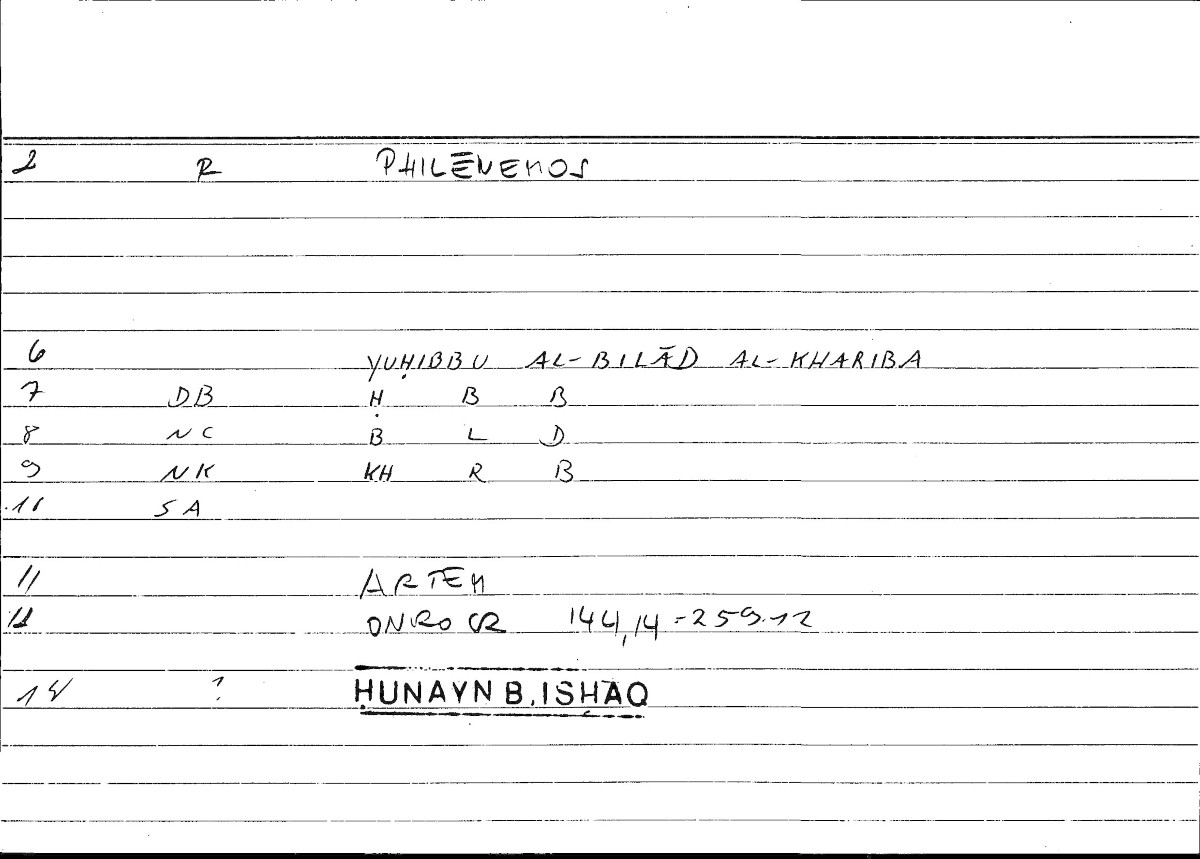 2 R PHILĒNEMOS
6 YUḤIBBU AL-BILĀD AL-KHARIBA
7 DB Ḥ B B
8 NC B L D
9 NK KH R B
10 SA
11 ARTEM
12 ONRO CR 144,14 = 259.12
14 ? ḤUNAYN B. ISḤĀQ